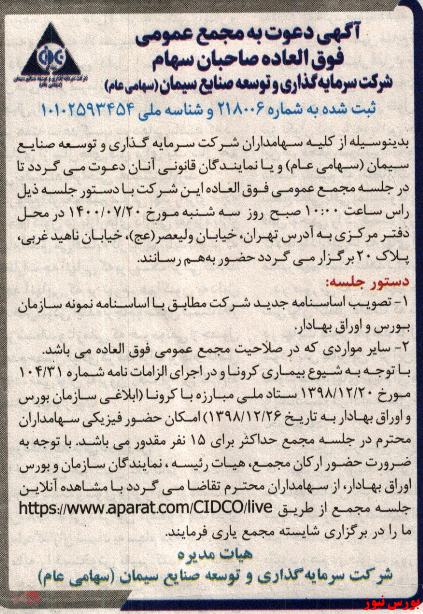 آگهی دعوت به مجمع عمومی
فوق العاده صاحبان سهام
شرکت سرمایه گذاری و توسعه صنایع سیمان (سهامی عام)
ثبت شده به شماره ۲۱۸۰۰۶ و شناسه ملی ۱۰۱۰۲۵۹۳۴۵۴
بدینوسیله از کلیه سهامداران شرکت سرمایه گذاری و توسعه صنایع
سیمان (سهامی عام) و یا نمایندگان قانونی آنان دعوت می گردد تا
در جلسه مجمع عمومی فوق العاده این شرکت با دستور جلسه ذیل
راس ساعت ۱۰:۰۰ صبح روز سه شنبه مورخ ۱۴۰۰/۰۷/۲۰ در محل
دفتر مرکزی به آدرس تهران، خیابان ولیعصر(عج)، خیابان ناهید غربی،
پلاک ۲۰ برگزار می گردد حضور به‌هم رسانند.
دستور جلسه:
۱- تصویب اساسنامه جدید شرکت مطابق با اساسنامه نمونه سازمان
بورس و اوراق بهادار.
۲- سایر مواردی که در صلاحیت مجمع عمومی فوق العاده می باشد.
با توجه به شیوع بیماری کرونا و در اجرای الزامات نامه شماره ۱۰۴/۳۱
مورخ ۱۳۹۸/۱۲/۲۰ ستاد ملی مبارزه با کرونا (ابلاغی سازمان بورس
و اوراق بهادار به تاریخ ۱۳۹۸/۱۲/۲۶) امکان حضور فیزیکی سهامداران
محترم در جلسه مجمع حداکثر برای ۱۵ نفر مقدور می باشد. با توجه به
ضرورت حضور ارکان مجمع، هیات رئیسه، نمایندگان سازمان و بورس
اوراق بهادار، از سهامداران محترم تقاضا می گردد با مشاهده آنلاین
جلسه مجمع از طریق https://www.aparat.com/CIDCO/live
ما را در برگزاری شایسته مجمع یاری فرمایند.
هیات مدیره
شرکت سرمایه گذاری و توسعه صنایع سیمان (سهامی عام)
بورس نیوز